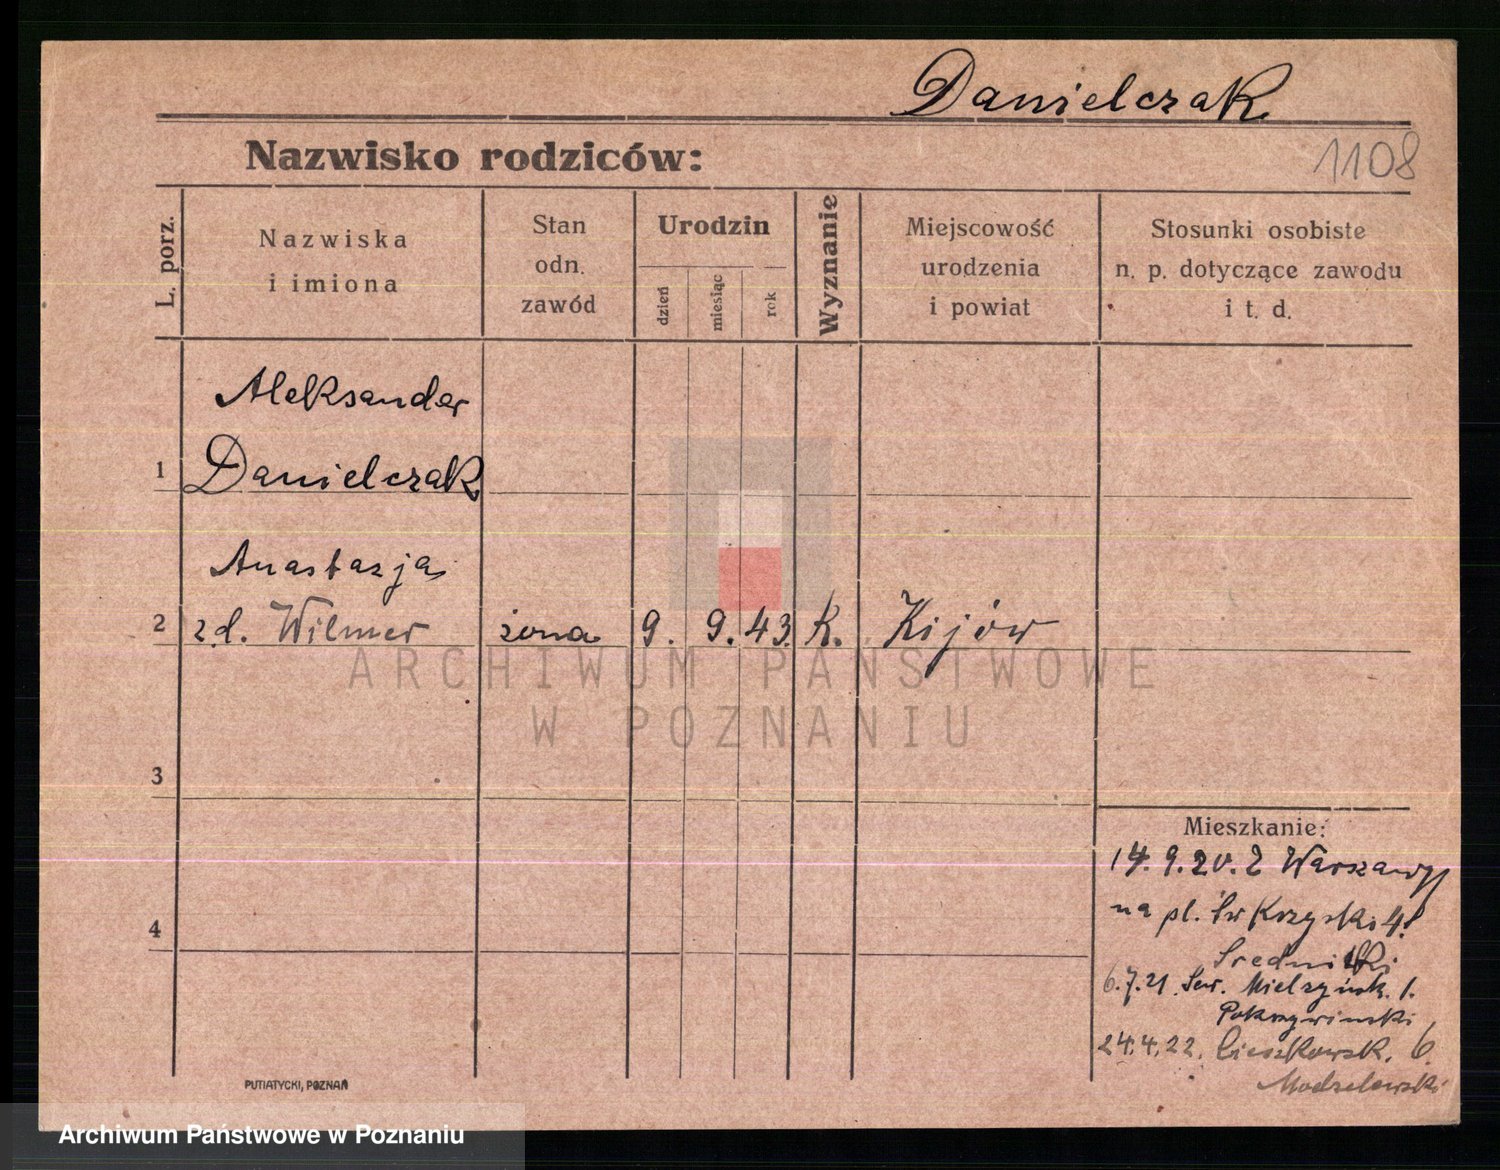 Danielczak
Nazwisko rodziców:
1108
L. porz.
Nazwiska
i imiona
Stan
odn.
zawód
Urodzin
dzień
miesiąc
rok
Wyznanie
Miejscowość
urodzenia
i powiat
Stosunki osobiste
n. p. dotyczące zawodu
i t. d.
Aleksander
1 Danielczak
Anastazja
2 z d. Wilmer żona 9. 9. 43. K. Kijów
3
4
Mieszkanie:
14.9.20. Z Warszawy
na pl. Św Krzyski 4.
Średnicki
6.7.21. Sew. Mielżyńsk. 1.
Pokrzywinski
24.4.22. Cieszkowsk. 6.
Modzelewski
PUTIATYCKI, POZNAŃ
ARCHIWUM PAŃSTWOWE
W POZNANIU
Archiwum Państwowe w Poznaniu